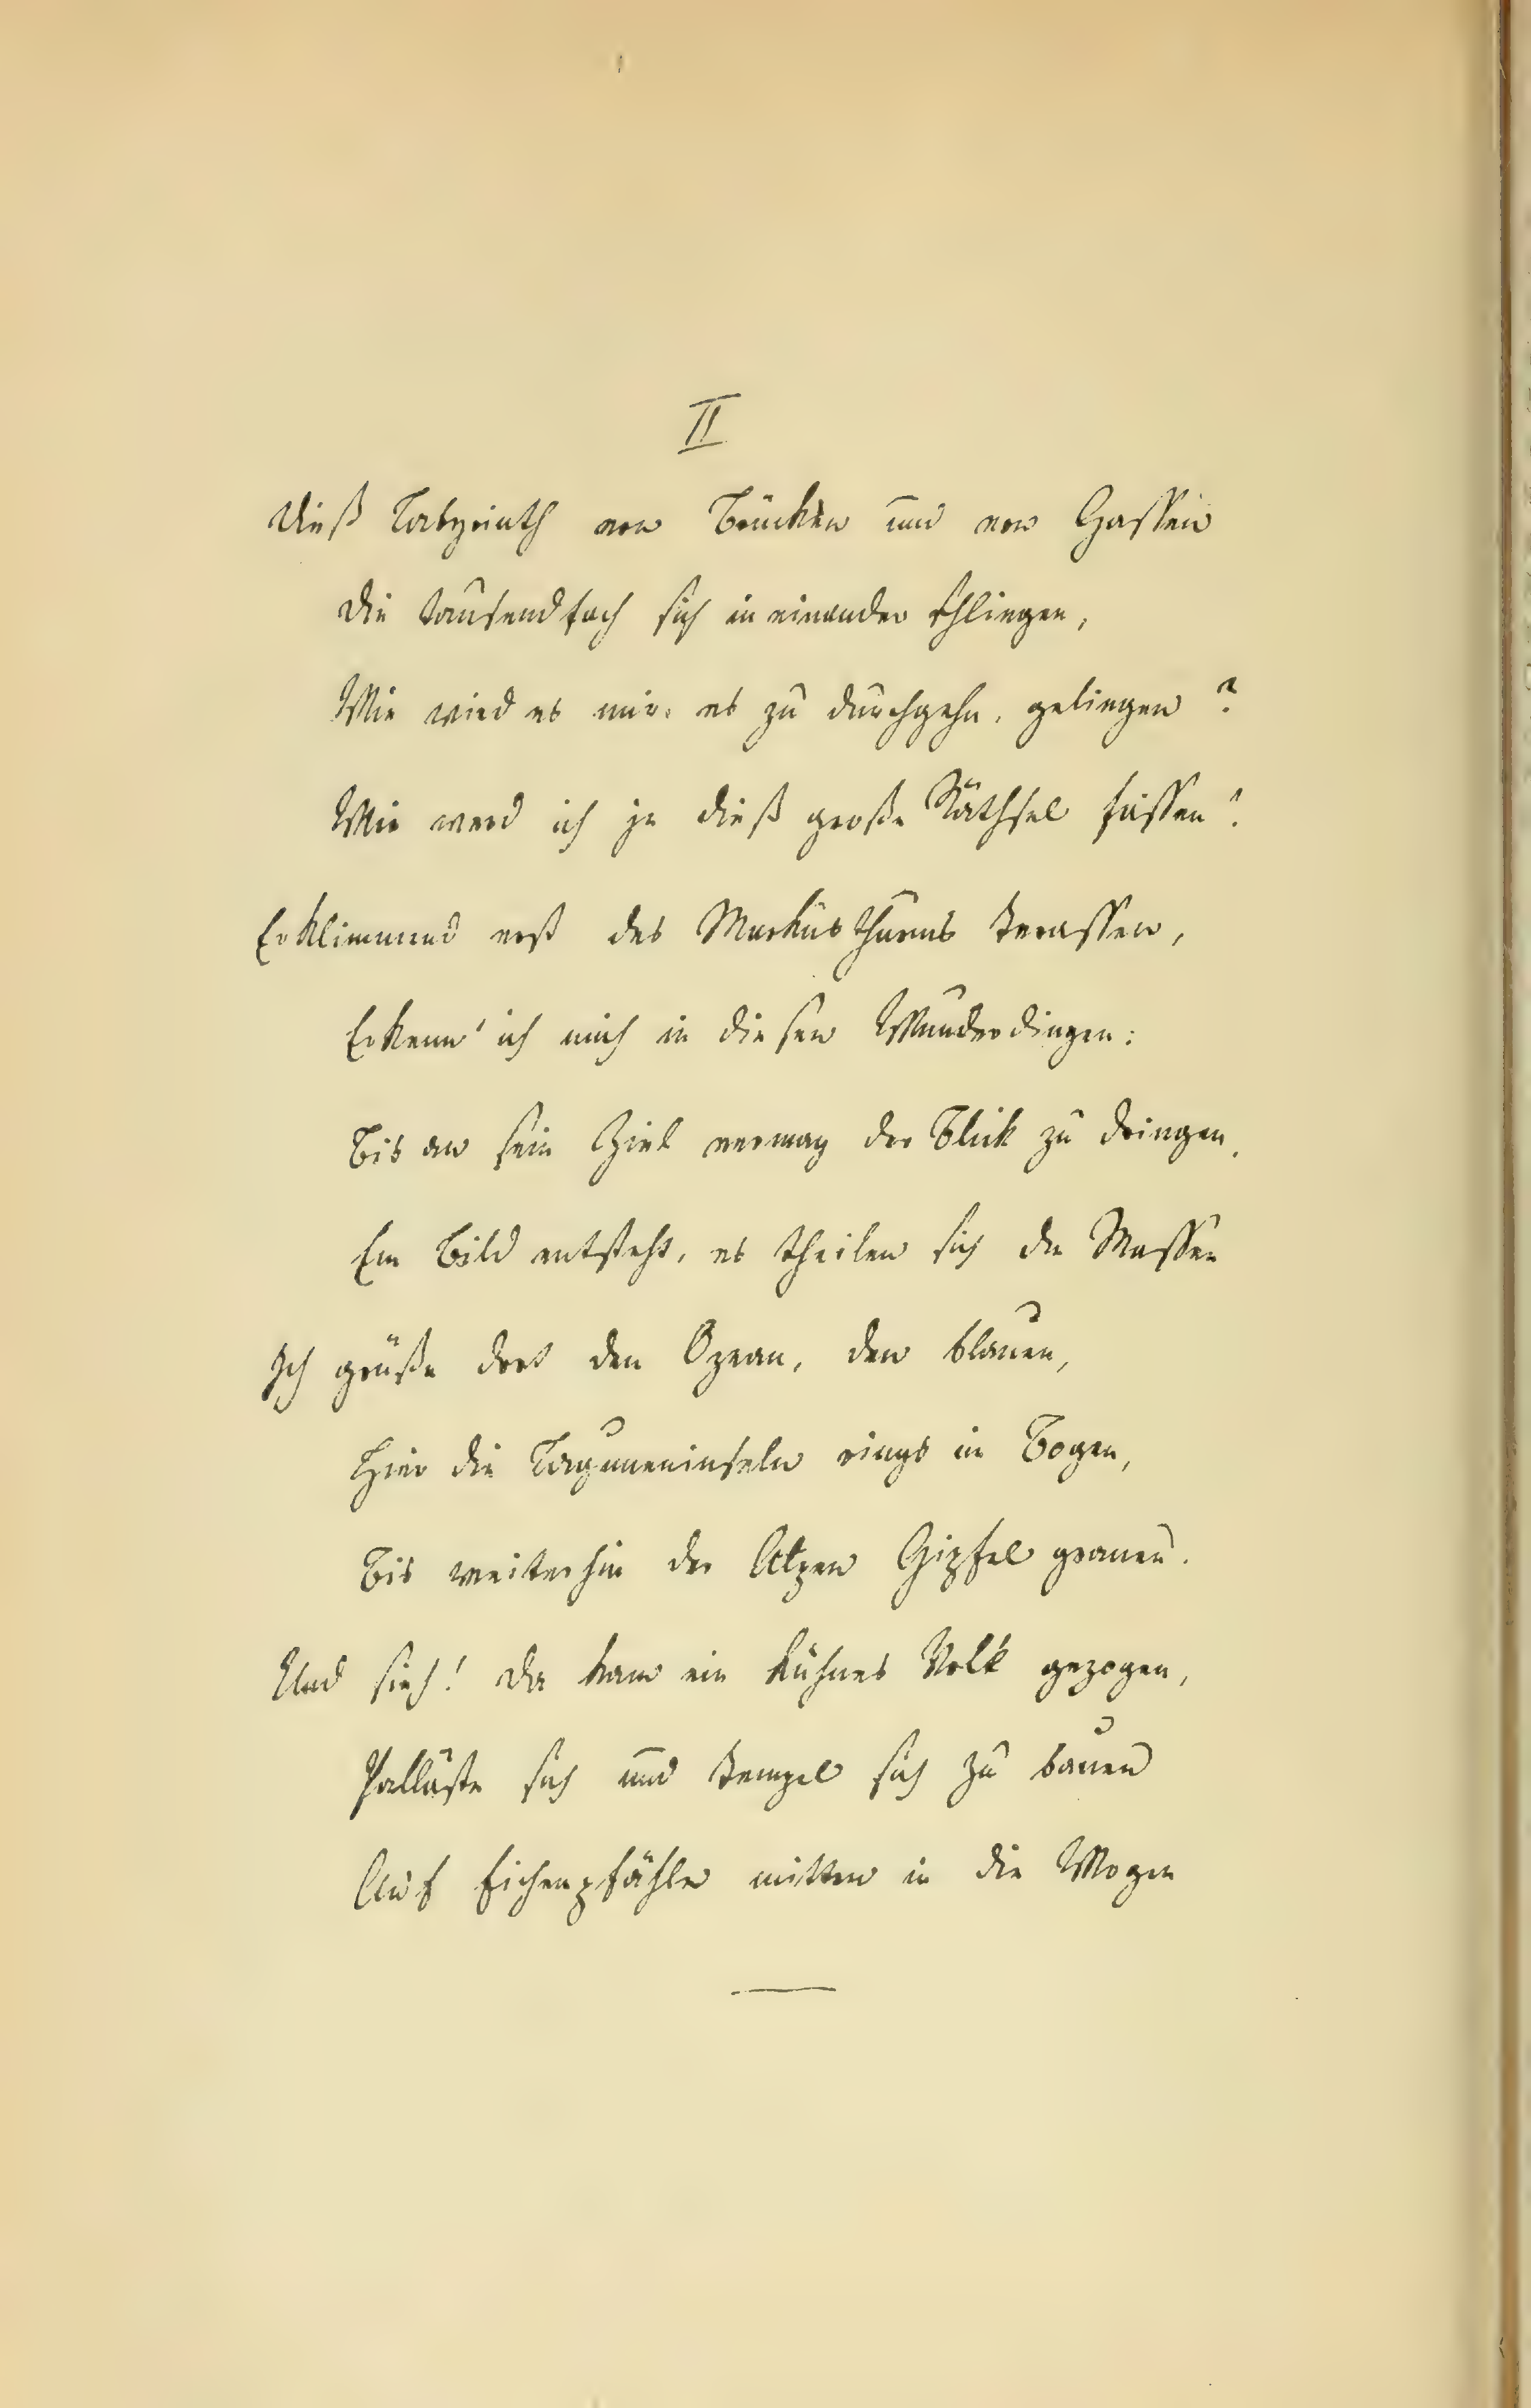 II
Dieß Labyrinth von Brücken und von Gassen
Die tausendfach sich in einander schlingen,
Wie wird es mir, es zu durchgehn, gelingen?
Wie werd ich je dieß große Räthsel fassen?
Erklimmend erst des Markusthurms Terassen,
Erkenn' ich mich in diesen Wunderdingen:
Bis an sein Ziel vermag der Blick zu dringen,
Ein Bild entsteht, es theilen sich die Massen
Ich grüße dort den Ozean, den blauen,
Hier die Laguneninseln rings in Bogen,
Bis weiterhin der Alpen Gipfel grauen.
Und sieh! da kam ein kühnes Volk gezogen,
Palläste sich und Tempel sich zu bauen
Auf Eichenpfähle mitten in die Wogen